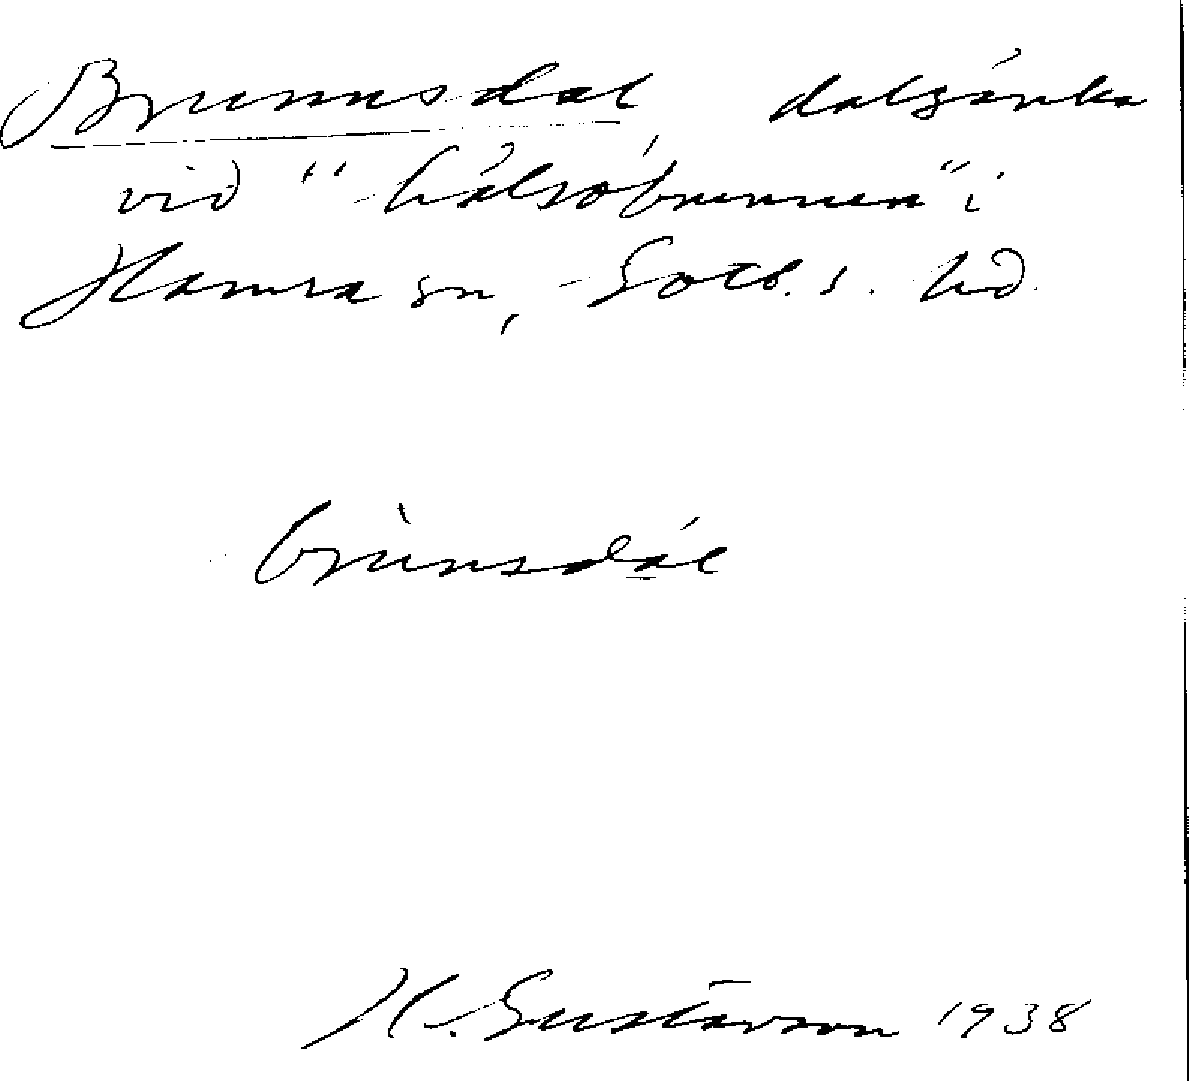 Brunnsdal, dalsänka
vid "hälsobrunnen" i
Hamra sn, Gotl. s. hd.
brùnsdál
H. Gustavson 1938